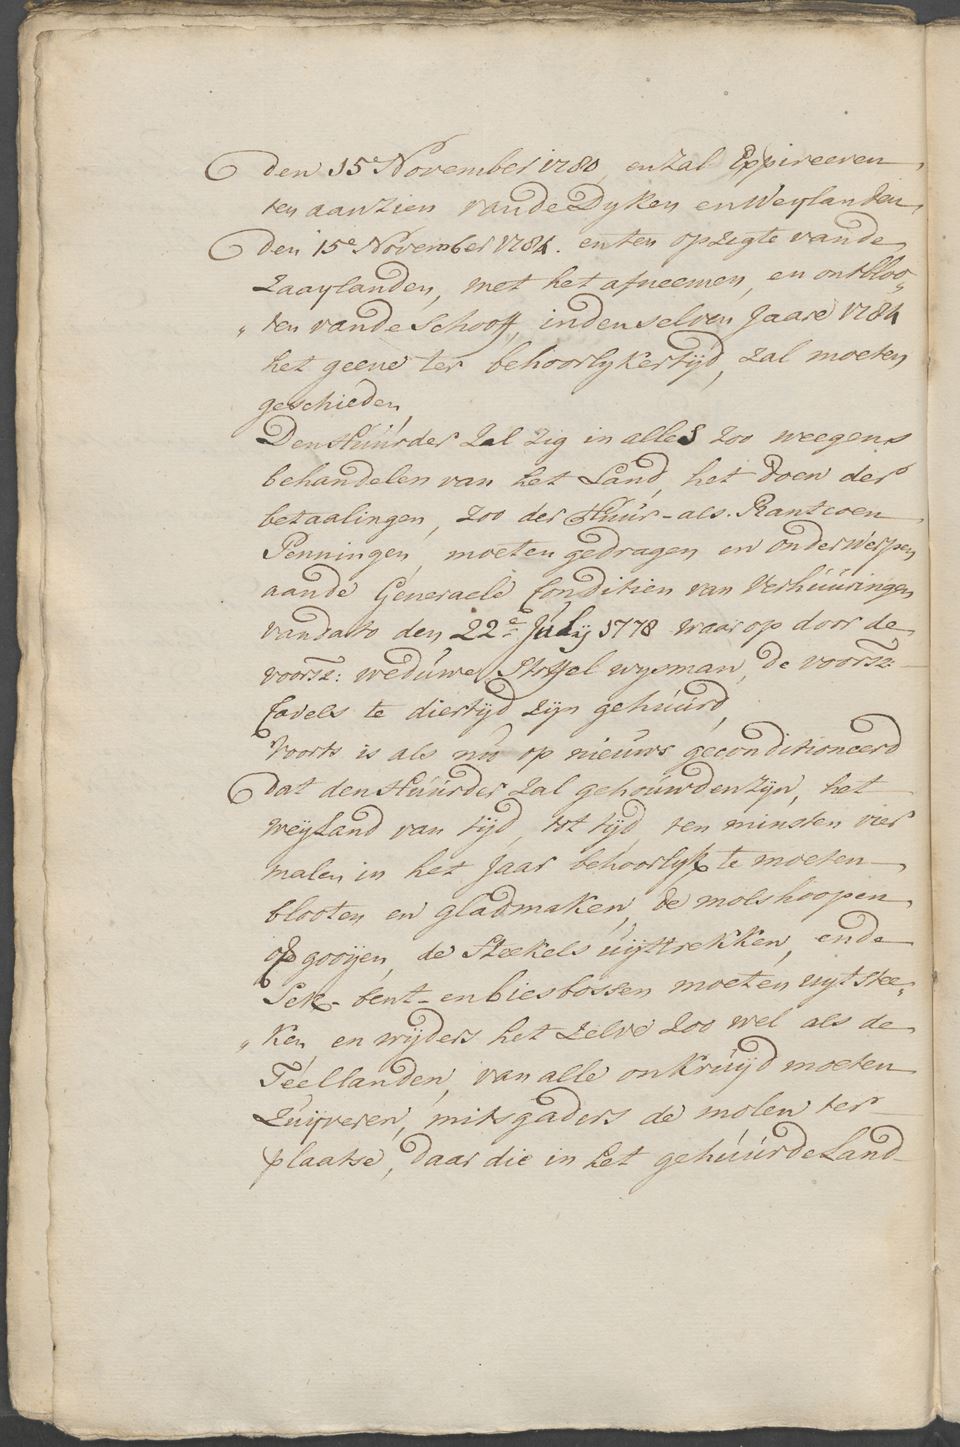 den 15e November 1780, en zal Expireeren
ten aanzien van de Dyken en Weylanden
den 15e November 1784. en ten opzigte van de
Zaaylanden, met het afneemen, en ontbloo„
„ten van de Schooff, in denselven Jaare 1784
het geene ter behoorlyker tijd, zal moeten
geschieden,
Den Húúrder Zal Zig in alles zoo weegens
behandelen van het Land, het doen der
betaalingen, zoo der Húúr- als Rantcoen
Penningen, moeten gedragen en onderwerpen
aan de Generaele Conditien van Verhúúringen
van dato den 22e July 1778 waar op door de
voorsz: wedúwe Stoffel wysman, de voorsz:
Cavels te dier tijd zijn gehúúrd,
Voorts is als nú op nieuws geconditioneerd
dat den Húúrder Zal gehoúwden zijn, het
weyLand van tijd, tot tijd, ten minsten vier
malen in het Jaar behoorlyk te moeten
blooten en gladmaken, de molshoopen
op gooyen, de Steekels úijttrekken, ende
Sek- bent- en biesbossen moeten uyt stee„
„ken en wijders het Zelve Zoo wel als de
Téellanden, van alle onkrúijd moeten
Zúijveren, mitsgaders de molen ter
plaatse, daar die in het gehúúrde Land